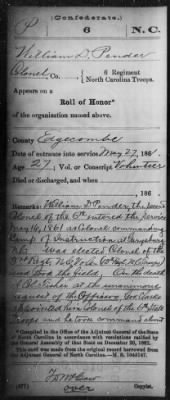 (Confederate.)
P 6 N.C.
William D. Pender
Colonel, Co. , 6 Regiment
North Carolina Troops.
Appears on a
Roll of Honor*
of the organization named above.
County Edgecombe
Date of entrance into service May 27, 1861.
Age 27, Vol. or Conscript Volunteer
Died or discharged, and when
, 186 .
Remarks: William D. Pender, the
Colonel of the 6th entered the service
May 16, 1861 as Colonel commanding
Camp of Instruction at
N.C. was elected Colonel of the
and took the field. On the death
of Col Fisher at the unanimous
request of the Officers, Gov. Clark
appointed him Colonel of the 6th State
Troops and he took command about
*Compiled in the Office of the Adjutant General of the State
of North Carolina in accordance with resolutions ratified by
the General Assembly of that State
This card was made from the original record borrowed from
the Adjutant General of North Carolina.
over
Copyist.